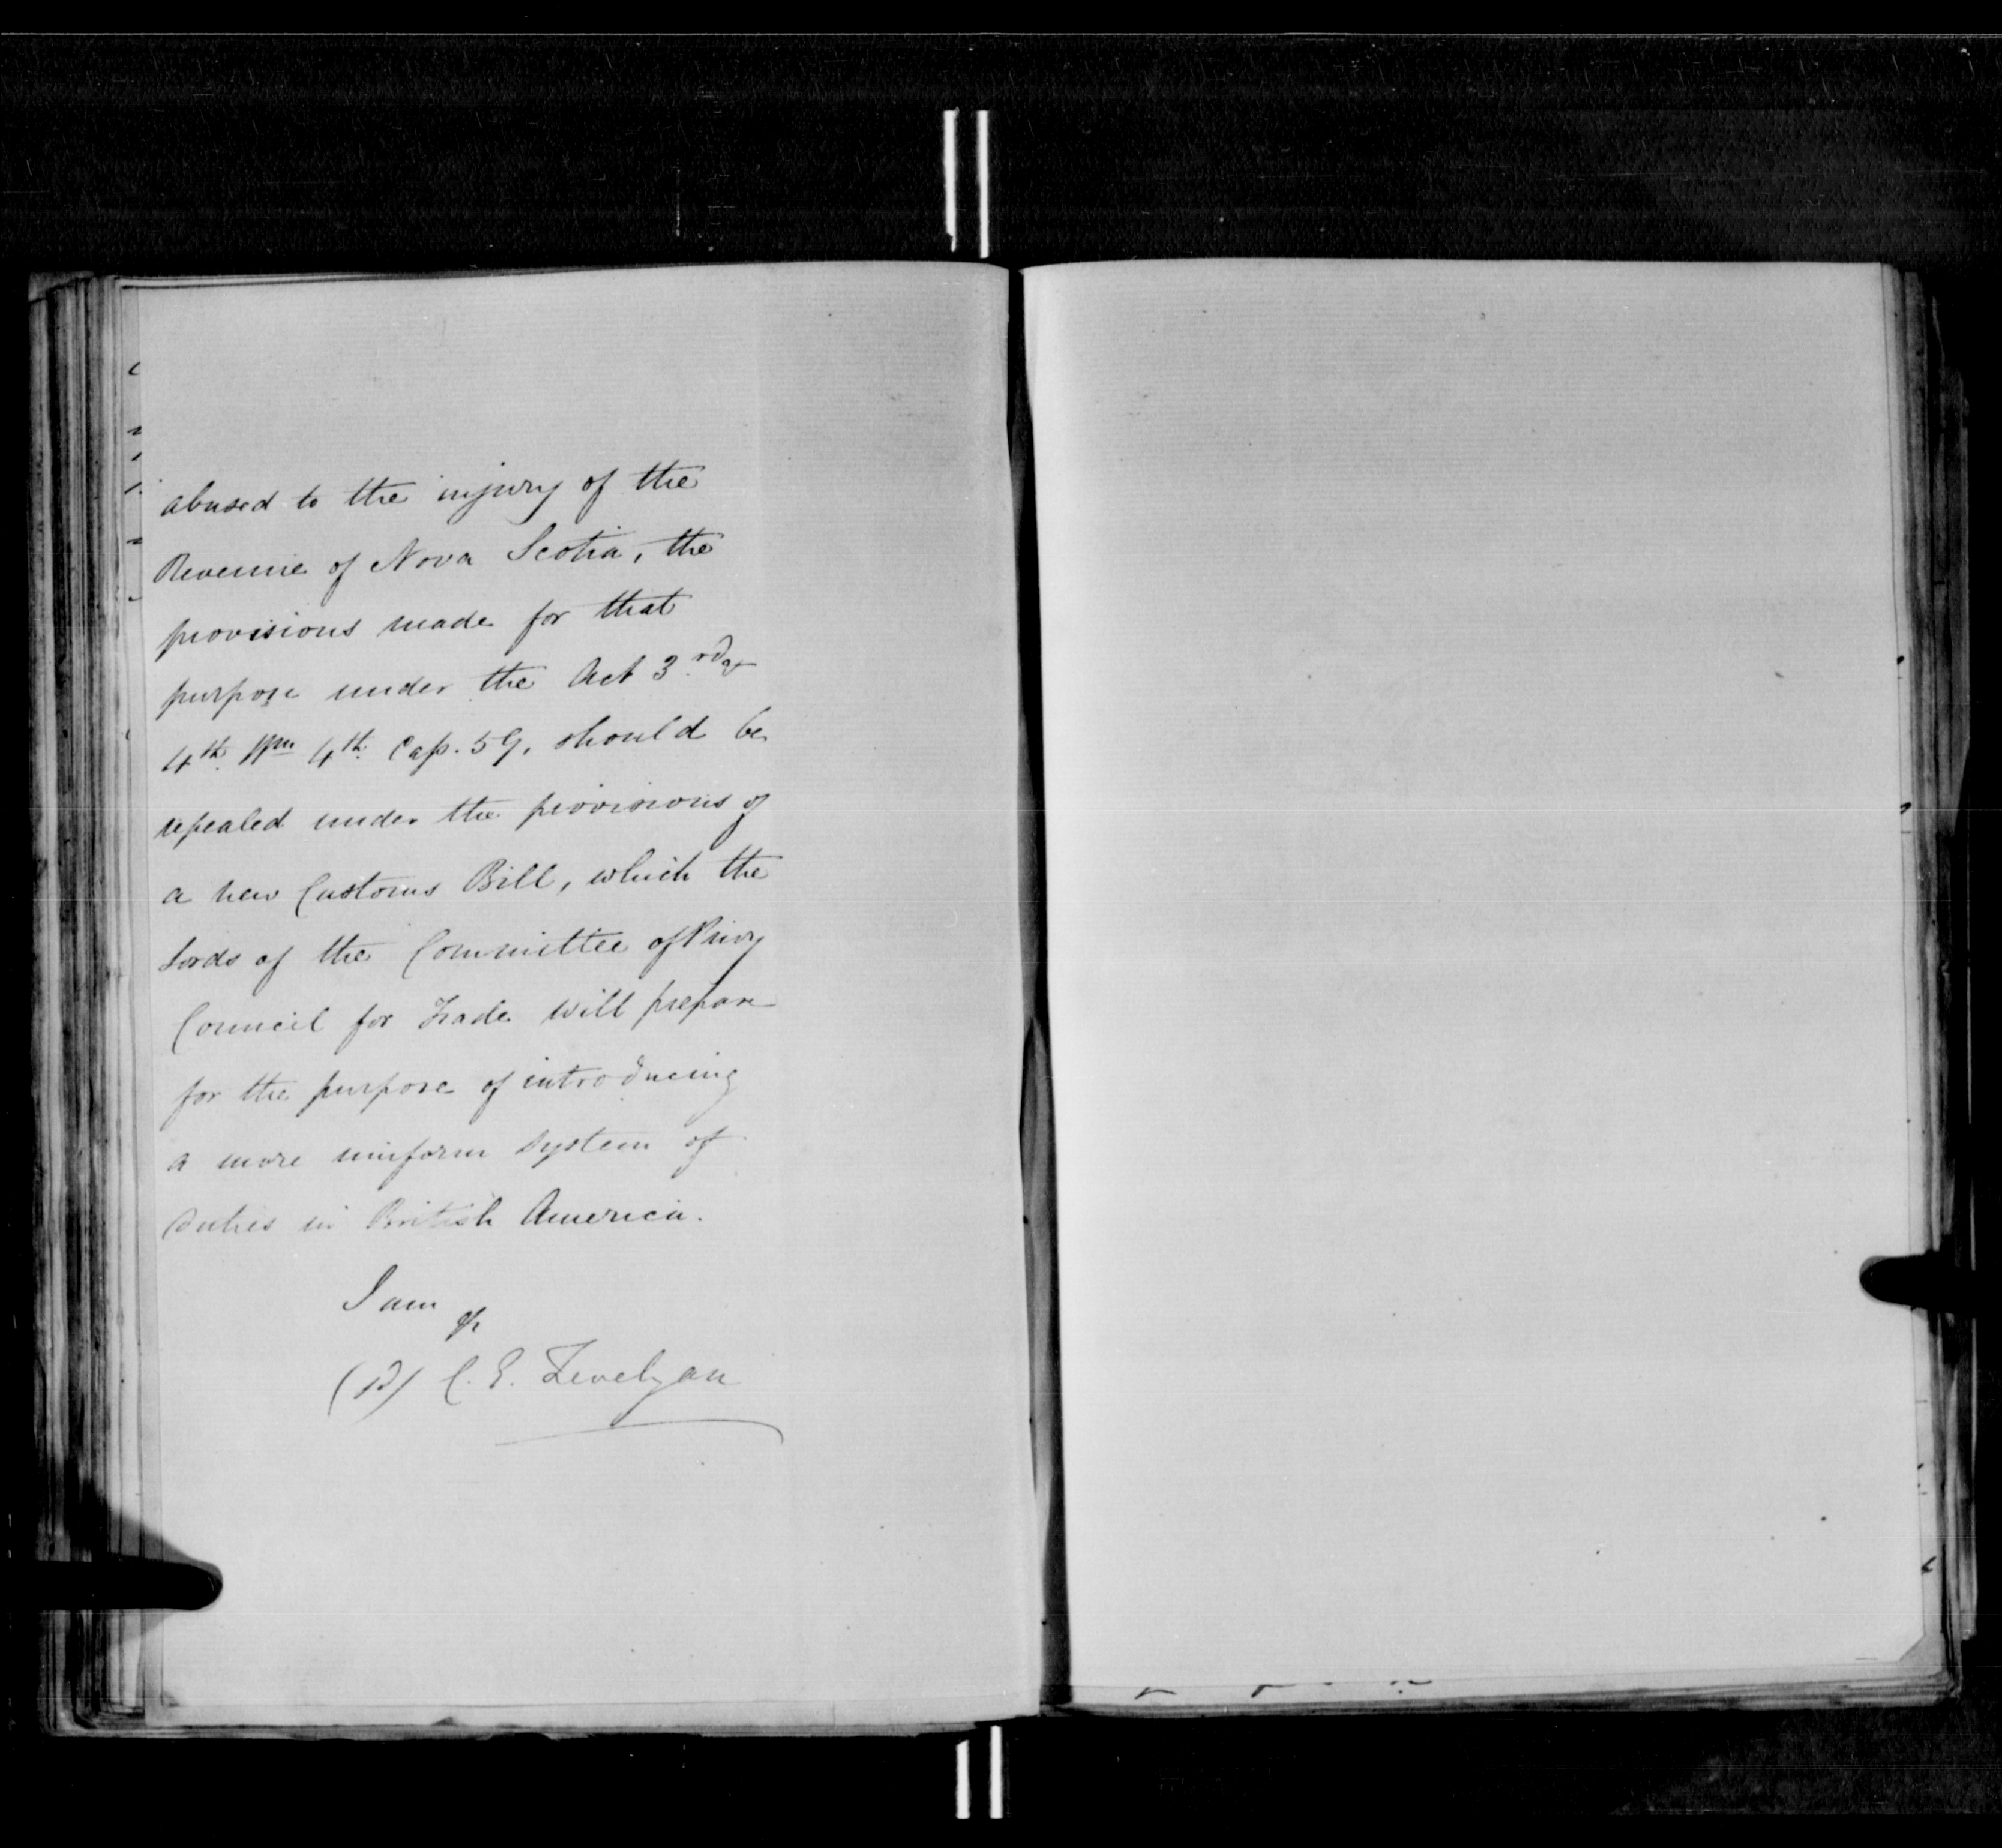 abused to the injury of the
Revenue of Nova Scotia, the
provisions made for that
purpose under the Act 3rd &
4th Wm 4th Cap. 59, should be
repealed under the provisions of
a new Customs Bill, which the
Lords of the Committee of Privy
Council for Trade will prepare
for the purpose of introducing
a more uniform system of
duties in British America.
I am
&c
(Sd) C. E. Trevelyan